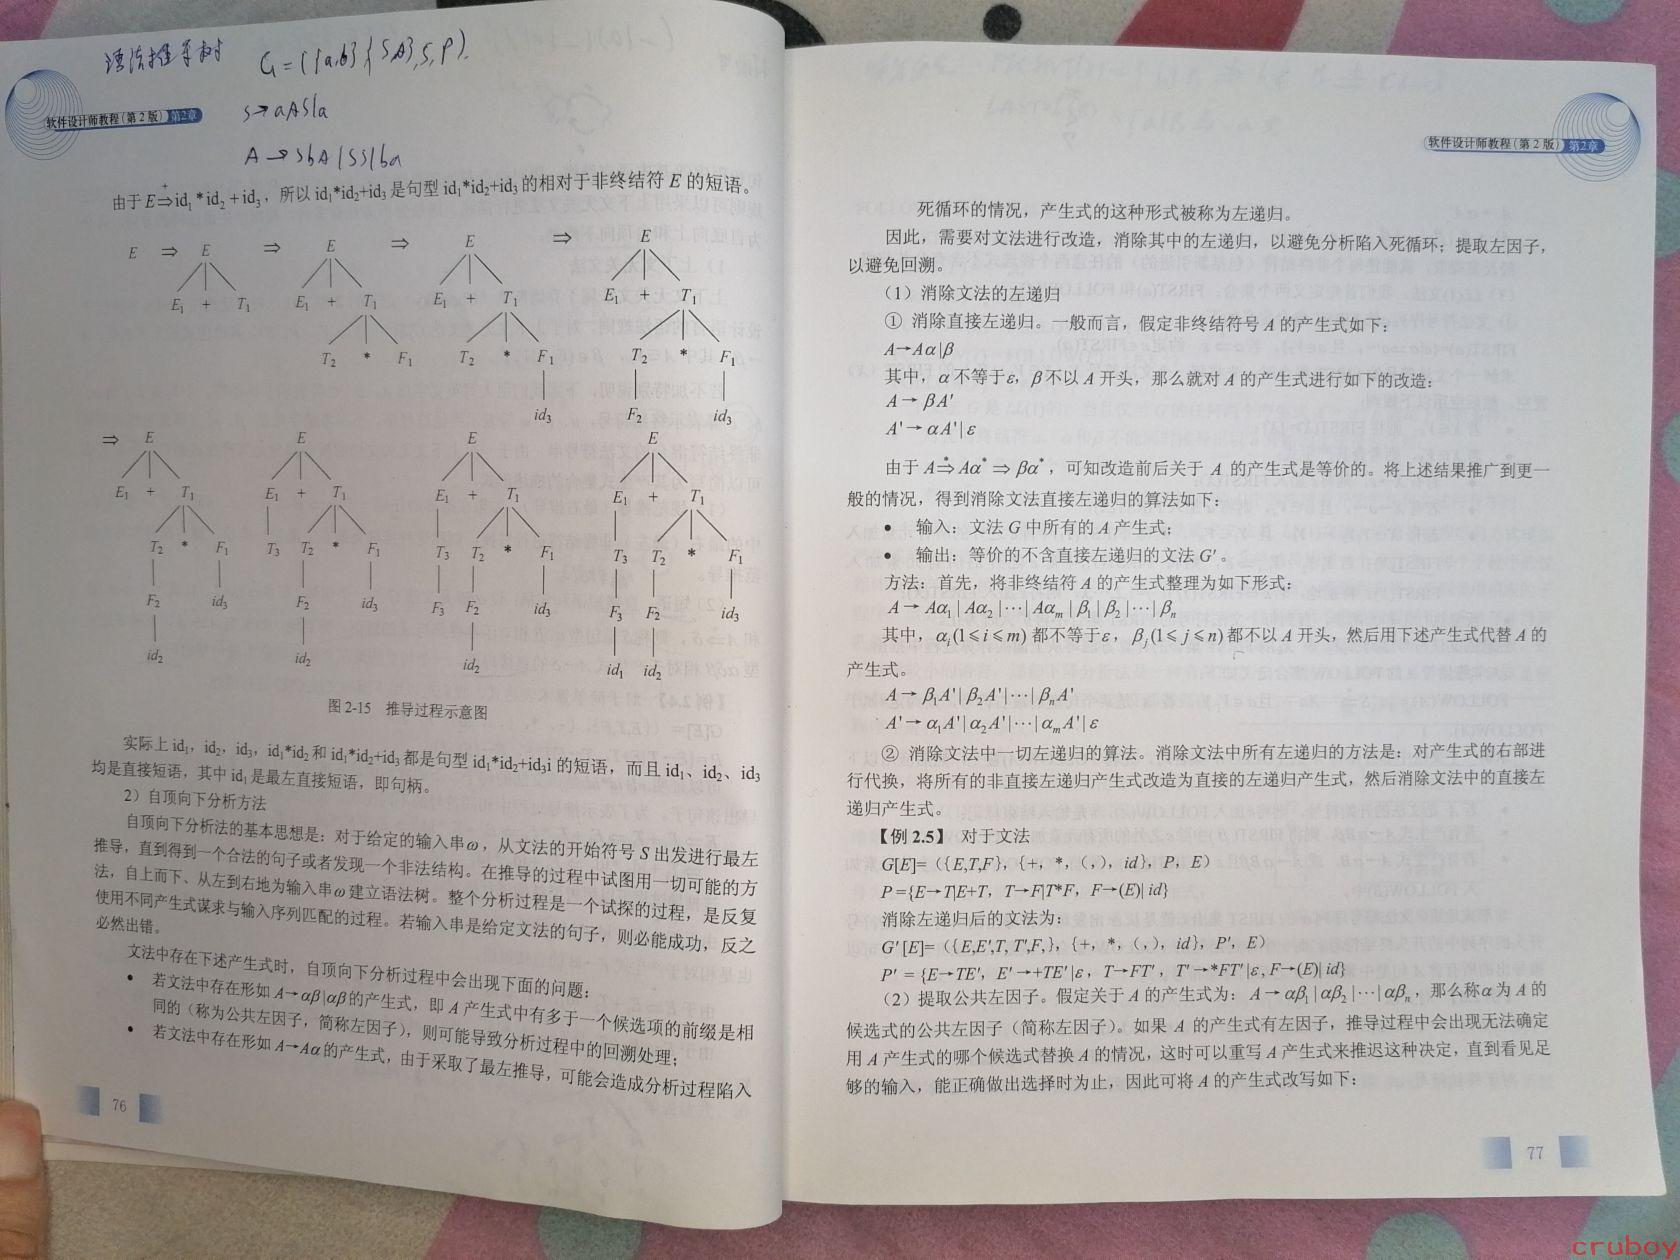 语法推导树 G=({a,b}{S,A},S,P).
S→aAS|a
A→SbA|SS|ba
软件设计师教程(第2版) 第2章
由于E⇒⁺id₁*id₂+id₃，所以 id₁*id₂+id₃是句型 id₁*id₂+id₃的相对于非终结符 E 的短语。
E ⇒ E ⇒ E ⇒ E ⇒ E
E₁ + T₁ E₁ + T₁ E₁ + T₁ E₁ + T₁
T₂ * F₁ T₂ * F₁ T₂ * F₁
id₃ F₂ id₃
⇒ E E E E
E₁ + T₁ E₁ + T₁ E₁ + T₁ E₁ + T₁
T₂ * F₁ T₃ T₂ * F₁ T₃ T₂ * F₁ T₃ T₂ * F₁
F₂ id₃ F₂ id₃ F₃ F₂ id₃ F₃ F₂ id₃
id₂ id₂ id₂ id₁ id₂
图 2-15 推导过程示意图
实际上 id₁，id₂，id₃，id₁*id₂和 id₁*id₂+id₃都是句型 id₁*id₂+id₃i 的短语，而且 id₁、id₂、id₃
均是直接短语，其中 id₁是最左直接短语，即句柄。
2）自顶向下分析方法
自顶向下分析法的基本思想是：对于给定的输入串ω，从文法的开始符号 S 出发进行最左
推导，直到得到一个合法的句子或者发现一个非法结构。在推导的过程中试图用一切可能的方
法，自上而下、从左到右地为输入串ω建立语法树。整个分析过程是一个试探的过程，是反复
使用不同产生式谋求与输入序列匹配的过程。若输入串是给定文法的句子，则必能成功，反之
必然出错。
文法中存在下述产生式时，自顶向下分析过程中会出现下面的问题：
• 若文法中存在形如 A→αβ|αβ的产生式，即 A 产生式中有多于一个候选项的前缀是相
同的（称为公共左因子，简称左因子），则可能导致分析过程中的回溯处理；
• 若文法中存在形如 A→Aα的产生式，由于采取了最左推导，可能会造成分析过程陷入
76
软件设计师教程(第2版) 第2章
死循环的情况，产生式的这种形式被称为左递归。
因此，需要对文法进行改造，消除其中的左递归，以避免分析陷入死循环；提取左因子，
以避免回溯。
（1）消除文法的左递归
① 消除直接左递归。一般而言，假定非终结符号 A 的产生式如下：
A→Aα|β
其中，α不等于ε，β不以 A 开头，那么就对 A 的产生式进行如下的改造：
A→βA'
A'→αA'|ε
由于 A⇒*Aα*⇒βα*，可知改造前后关于 A 的产生式是等价的。将上述结果推广到更一
般的情况，得到消除文法直接左递归的算法如下：
• 输入：文法 G 中所有的 A 产生式；
• 输出：等价的不含直接左递归的文法 G'。
方法：首先，将非终结符 A 的产生式整理为如下形式：
A→Aα₁|Aα₂|⋯|Aαₘ|β₁|β₂|⋯|βₙ
其中，αᵢ(1≤i≤m)都不等于ε，βⱼ(1≤j≤n)都不以 A 开头，然后用下述产生式代替 A 的
产生式。
A→β₁A'|β₂A'|⋯|βₙA'
A'→α₁A'|α₂A'|⋯|αₘA'|ε
② 消除文法中一切左递归的算法。消除文法中所有左递归的方法是：对产生式的右部进
行代换，将所有的非直接左递归产生式改造为直接的左递归产生式，然后消除文法中的直接左
递归产生式。
【例 2.5】 对于文法
G[E]=（{E,T,F}，{+，*，（，），id}，P，E）
P={E→T|E+T，T→F|T*F，F→(E)| id}
消除左递归后的文法为：
G'[E]=（{E,E',T, T',F,}，{+，*，（，），id}，P'，E）
P' ={E→TE'，E'→+TE'|ε，T→FT'，T'→*FT'|ε, F→(E)| id}
（2）提取公共左因子。假定关于 A 的产生式为：A→αβ₁|αβ₂|⋯|αβₙ，那么称α为 A 的
候选式的公共左因子（简称左因子）。如果 A 的产生式有左因子，推导过程中会出现无法确定
用 A 产生式的哪个候选式替换 A 的情况，这时可以重写 A 产生式来推迟这种决定，直到看见足
够的输入，能正确做出选择时为止，因此可将 A 的产生式改写如下：
77
cruboy